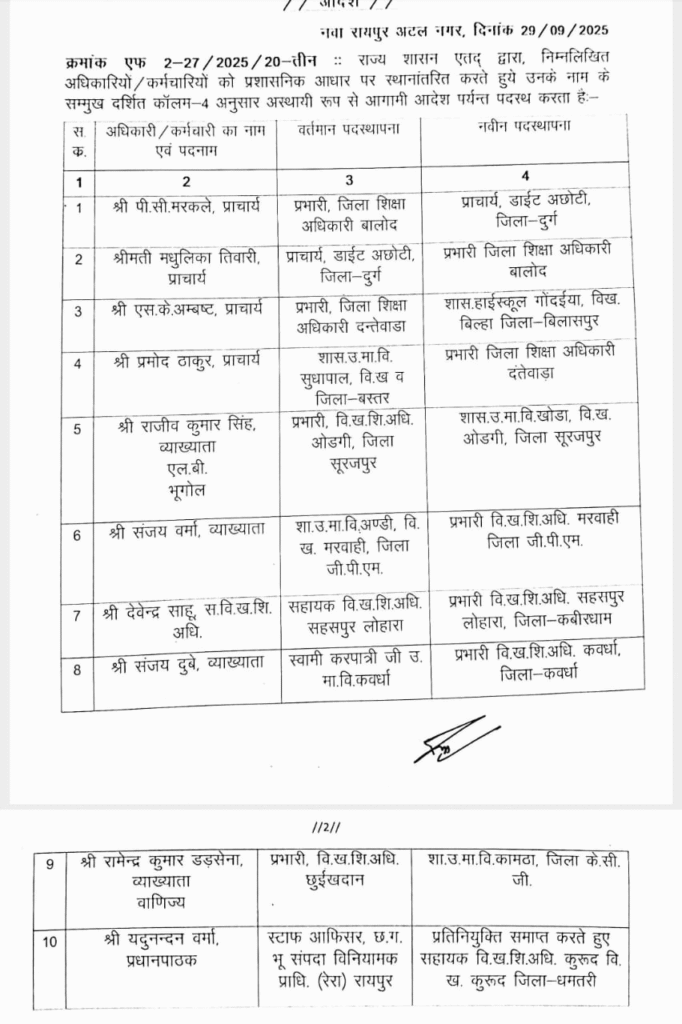 // आदेश //
नवा रायपुर अटल नगर, दिनांक 29/09/2025
क्रमांक एफ 2-27/2025/20-तीन :: राज्य शासन एतद् द्वारा, निम्नलिखित
अधिकारियों/कर्मचारियों को प्रशासनिक आधार पर स्थानांतरित करते हुये उनके नाम के
सम्मुख दर्शित कॉलम-4 अनुसार अस्थायी रूप से आगामी आदेश पर्यन्त पदस्थ करता है:-
स. अधिकारी/कर्मचारी का नाम वर्तमान पदस्थापना नवीन पदस्थापना
क. एवं पदनाम
1 2 3 4
1 श्री पी.सी.मरकले, प्राचार्य प्रभारी, जिला शिक्षा प्राचार्य, डाईट अछोटी,
अधिकारी बालोद जिला-दुर्ग
2 श्रीमती मधुलिका तिवारी, प्राचार्य, डाईट अछोटी, प्रभारी जिला शिक्षा अधिकारी
प्राचार्य जिला-दुर्ग बालोद
3 श्री एस.के.अम्बष्ट, प्राचार्य प्रभारी, जिला शिक्षा शास.हाईस्कूल गोंदईया, विख.
अधिकारी दन्तेवाडा बिल्हा जिला-बिलासपुर
4 श्री प्रमोद ठाकुर, प्राचार्य शास.उ.मा.वि. प्रभारी जिला शिक्षा अधिकारी
सुधापाल, वि.ख व दंतेवाड़ा
जिला-बस्तर
5 श्री राजीव कुमार सिंह, प्रभारी, वि.ख.शि.अधि. शास.उ.मा.वि.खोडा, वि.ख.
व्याख्याता ओडगी, जिला ओडगी, जिला सूरजपुर
एल.बी. सूरजपुर
भूगोल
6 श्री संजय वर्मा, व्याख्याता शा.उ.मा.वि.अण्डी, वि. प्रभारी वि.ख.शि.अधि. मरवाही
ख. मरवाही, जिला जिला जी.पी.एम.
जी.पी.एम.
7 श्री देवेन्द्र साहू, स.वि.ख.शि. सहायक वि.ख.शि.अधि. प्रभारी वि.ख.शि.अधि. सहसपुर
अधि. सहसपुर लोहारा लोहारा, जिला-कबीरधाम
8 श्री संजय दुबे, व्याख्याता स्वामी करपात्री जी उ. प्रभारी वि.ख.शि.अधि. कवर्धा,
मा.वि.कवर्धा जिला-कवर्धा
//2//
9 श्री रामेन्द्र कुमार डड़सेना, प्रभारी, वि.ख.शि.अधि. शा.उ.मा.वि.कामठा, जिला के.सी.
व्याख्याता छुईखदान जी.
वाणिज्य
10 श्री यदुनन्दन वर्मा, स्टाफ आफिसर, छ.ग. प्रतिनियुक्ति समाप्त करते हुए
प्रधानपाठक भू संपदा विनियामक सहायक वि.ख.शि.अधि. कुरूद वि.
प्राधि. (रेरा) रायपुर ख. कुरूद जिला-धमतरी